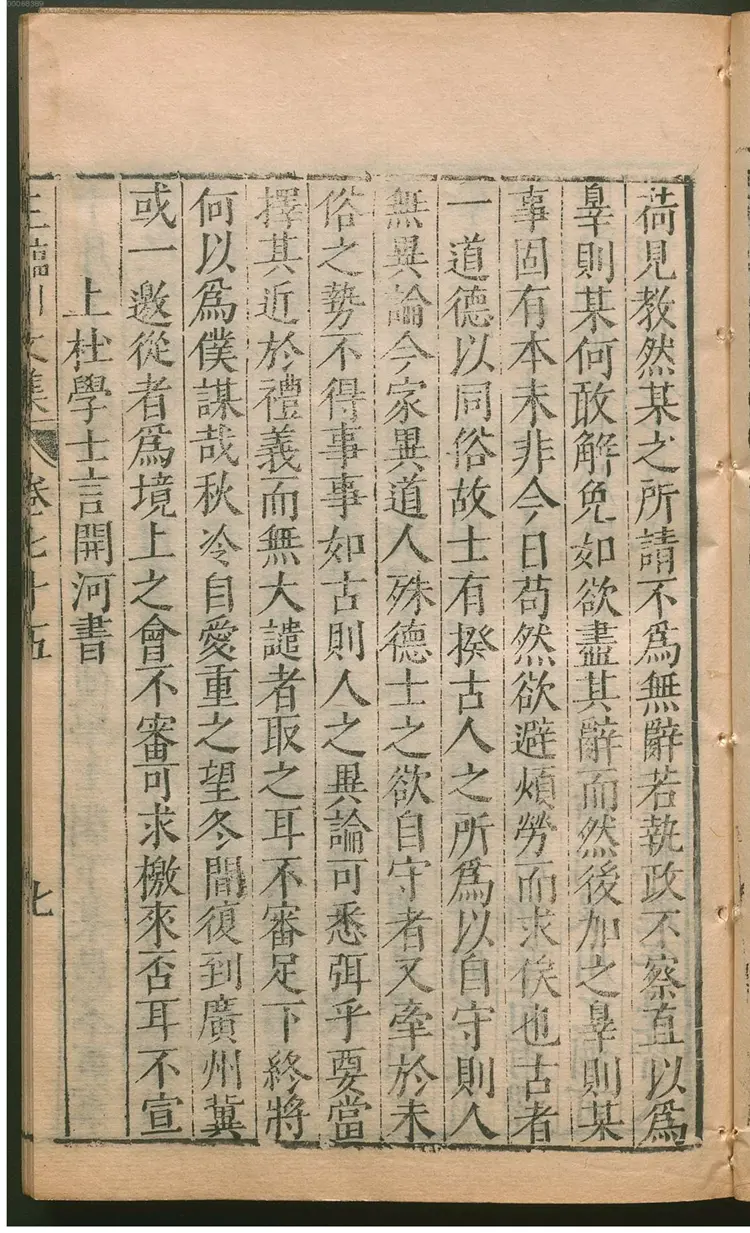 00068369
荷見教然某之所請不爲無辭若執政不察直以爲
辠則某何敢解免如欲盡其辭而然後加之辠則某
事固有本末非今日苟然欲避煩勞而求佚也古者
一道德以同俗故士有揆古人之所爲以自守則人
無異論今家異道人殊德士之欲自守者又牽於末
俗之勢不得事事如古則人之異論可悉弭乎要當
擇其近於禮義而無大譴者取之耳不審足下終將
何以爲僕謀哉秋冷自愛重之望冬間復到廣州冀
或一邀從者爲境上之會不審可求檄來否耳不宣
上杜學士言開河書
王臨川文集 卷七十五 七